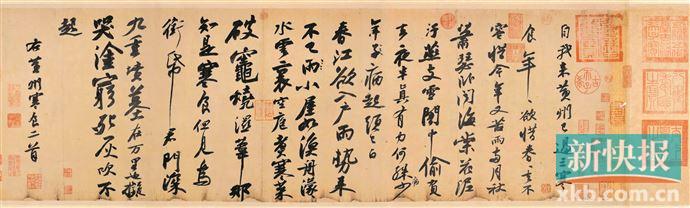 自我來黃州已過三寒
食年々欲惜春春去不
容惜今年又苦雨兩月秋
蕭瑟卧聞海棠花泥
汙燕支雪闇中偷負
去夜半真有力何殊病少
年子病起頭已白
春江欲入户雨勢來
不已雨小屋如漁舟濛々
水雲裏空庖煮寒菜
破竈燒濕葦那
知是寒食但見烏
銜帋君門深
九重墳墓在万里也擬
哭塗窮死灰吹不
起
右黃州寒食二首
新快报
xkb.com.cn